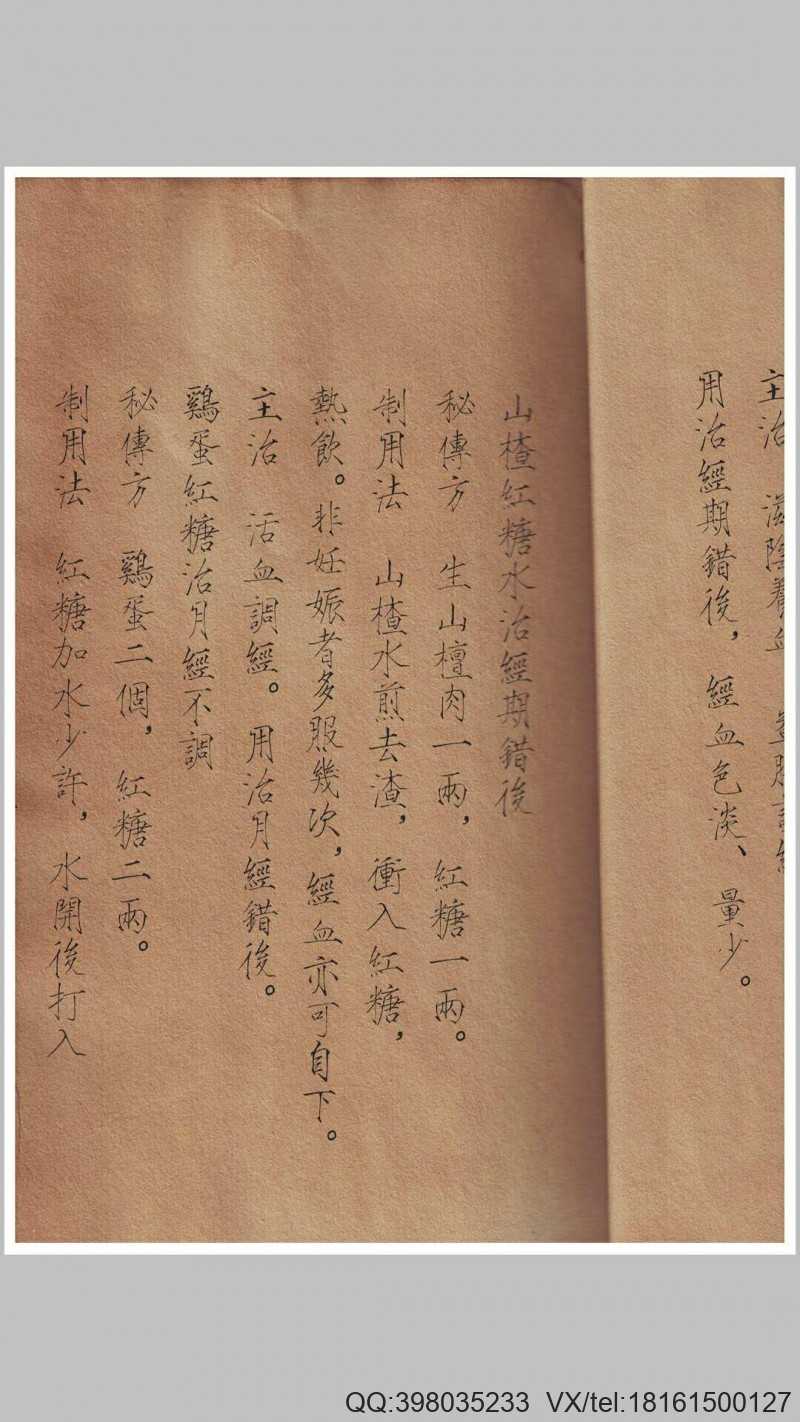 主治　滋陰養血
用治經期錯後，經血色淡、量少。
山楂紅糖水治經期錯後
秘傳方　生山檀肉一兩，紅糖一兩。
制用法　山楂水煎去渣，衝入紅糖，
熱飲。非妊娠者多服幾次，經血亦可自下。
主治　活血調經。用治月經錯後。
鷄蛋紅糖治月經不調
秘傳方　鷄蛋二個，紅糖二兩。
制用法　紅糖加水少許，水開後打入
QQ:398035233 VX/tel:18161500127